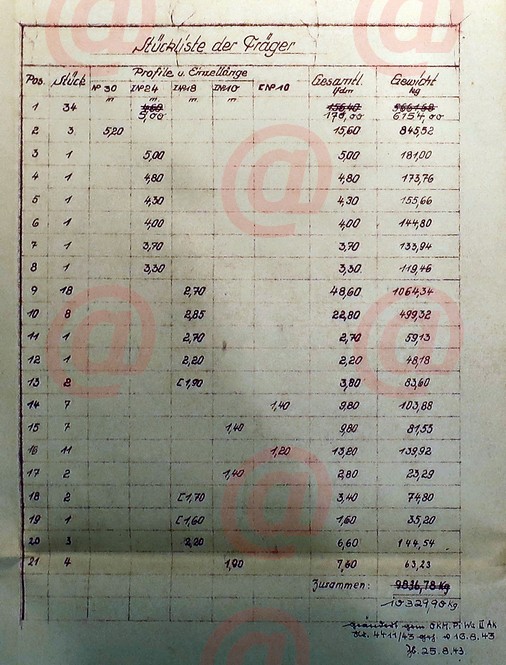 Stückliste der Träger
Pos. Stück Profile u. Einzellänge Gesamtl. Gewicht
№ 30 IN⁰24 IN⁰18 IN⁰10 C N⁰10 lfdm kg
m. m. m. m.
1 34 15640 9661,68
5,00 170,00 6154,00
2 3 5,20 15,60 845,52
3 1 5,00 5,00 181,00
4 1 4,80 4,80 173,76
5 1 4,30 4,30 155,66
6 1 4,00 4,00 144,80
7 1 3,70 3,70 133,94
8 1 3,30 3,30 119,46
9 18 2,70 48,60 1064,34
10 8 2,85 22,80 499,32
11 1 2,70 2,70 59,13
12 1 2,20 2,20 48,18
13 2 [1,90 3,80 83,60
14 7 1,40 9,80 103,88
15 7 1,40 9,80 81,53
16 11 1,20 13,20 139,92
17 2 1,40 2,80 23,29
18 2 [1,70 3,40 74,80
19 1 [1,60 1,60 35,20
20 3 2,20 6,60 144,54
21 4 1,90 7,60 63,23
Zusammen: 9836,78 kg
10329,90 kg
geändert gem OKH. Pi Wa II Ak
Nr. 4411/43 v 16.8.43
25.8.43